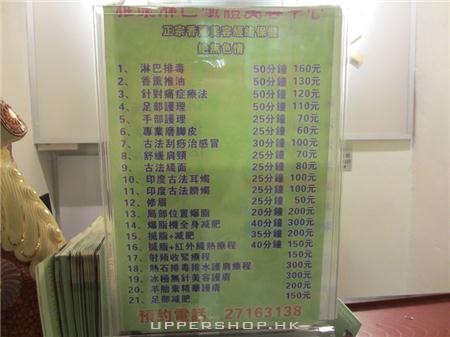 正宗香薰美容經絡保健
絕無色情
1、 淋巴排毒 50分鐘 160元
2、 香薰推油 50分鐘 130元
3、 針對痛症療法 50分鐘 120元
4、 足部護理 50分鐘 110元
5、 手部護理 25分鐘 70元
6、 專業磨腳皮 25分鐘 60元
7、 古法刮痧治感冒 30分鐘 100元
8、 舒緩肩頸 25分鐘 70元
9、 古法綫面 25分鐘 80元
10、 印度古法耳燭 25分鐘 100元
11、 印度古法臍燭 25分鐘 100元
12、 修眉 25分鐘 50元
13、 局部位置爆脂 20分鐘 200元
14、 爆脂機全身减肥 40分鐘 300元
15、 搣脂+减肥 35分鐘 200元
16、 搣脂+紅外綫熱療程 40分鐘 150元
17、 射頻收緊療程 150元
18、 熱石排毒排水護肩療程 300元
19、 冰極無針美容護膚 300元
20、 羊胎素精華護膚 200元
21、 足部减肥 150元
預約電話 27163138
UPPERSHOP.HK